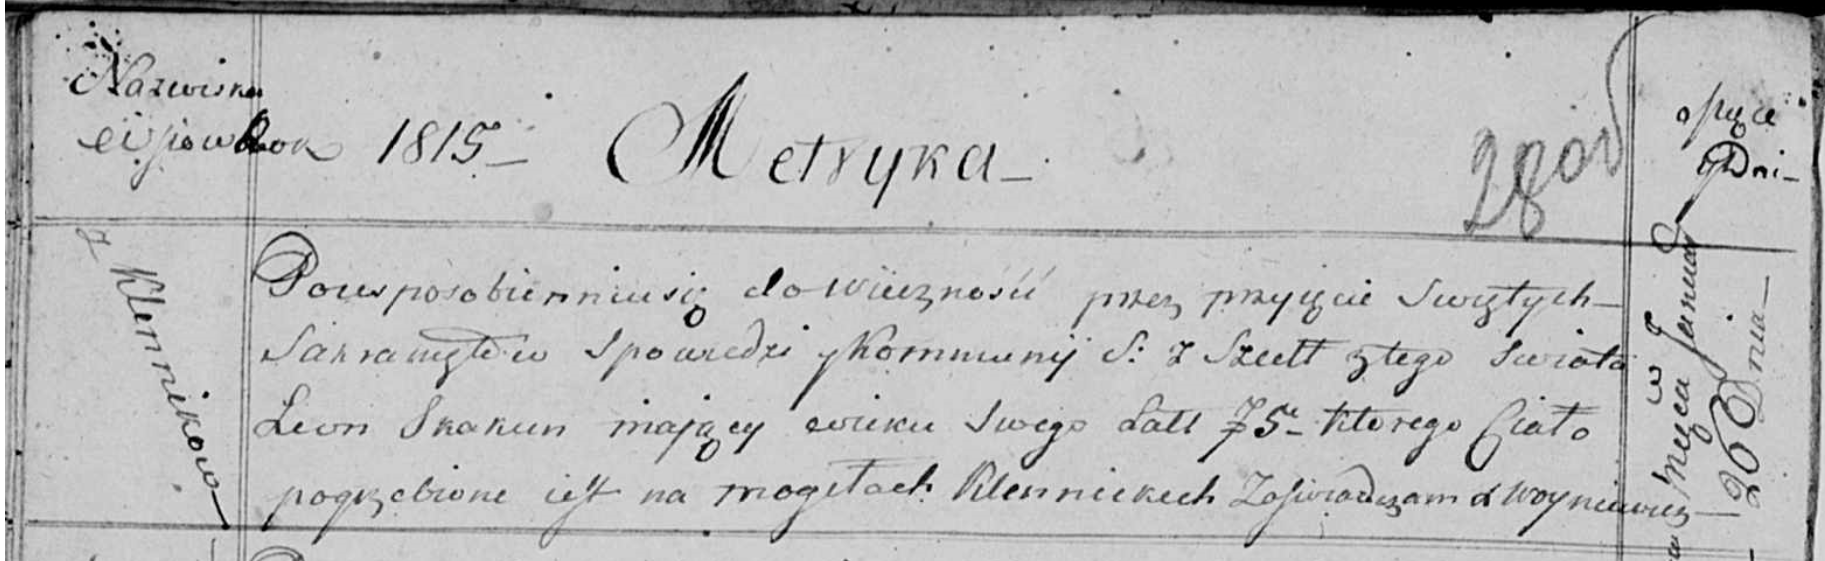 Nazwiska
1815 Metryka
Dni
z Klennikow
Po usposobienniu się do wiecznosci przez przyięcie Swiętych
Sakramętow Spowiedzi y Kommunij S: z Szedł z tego Swiata
Leon Skakun maiący wieku Swego Latt 75 ktorego Ciało
pogrzebione iest na mogiłach Klennickich Zaswiadczam Woyniewicz
w
Mcu Januar
26 Dnia